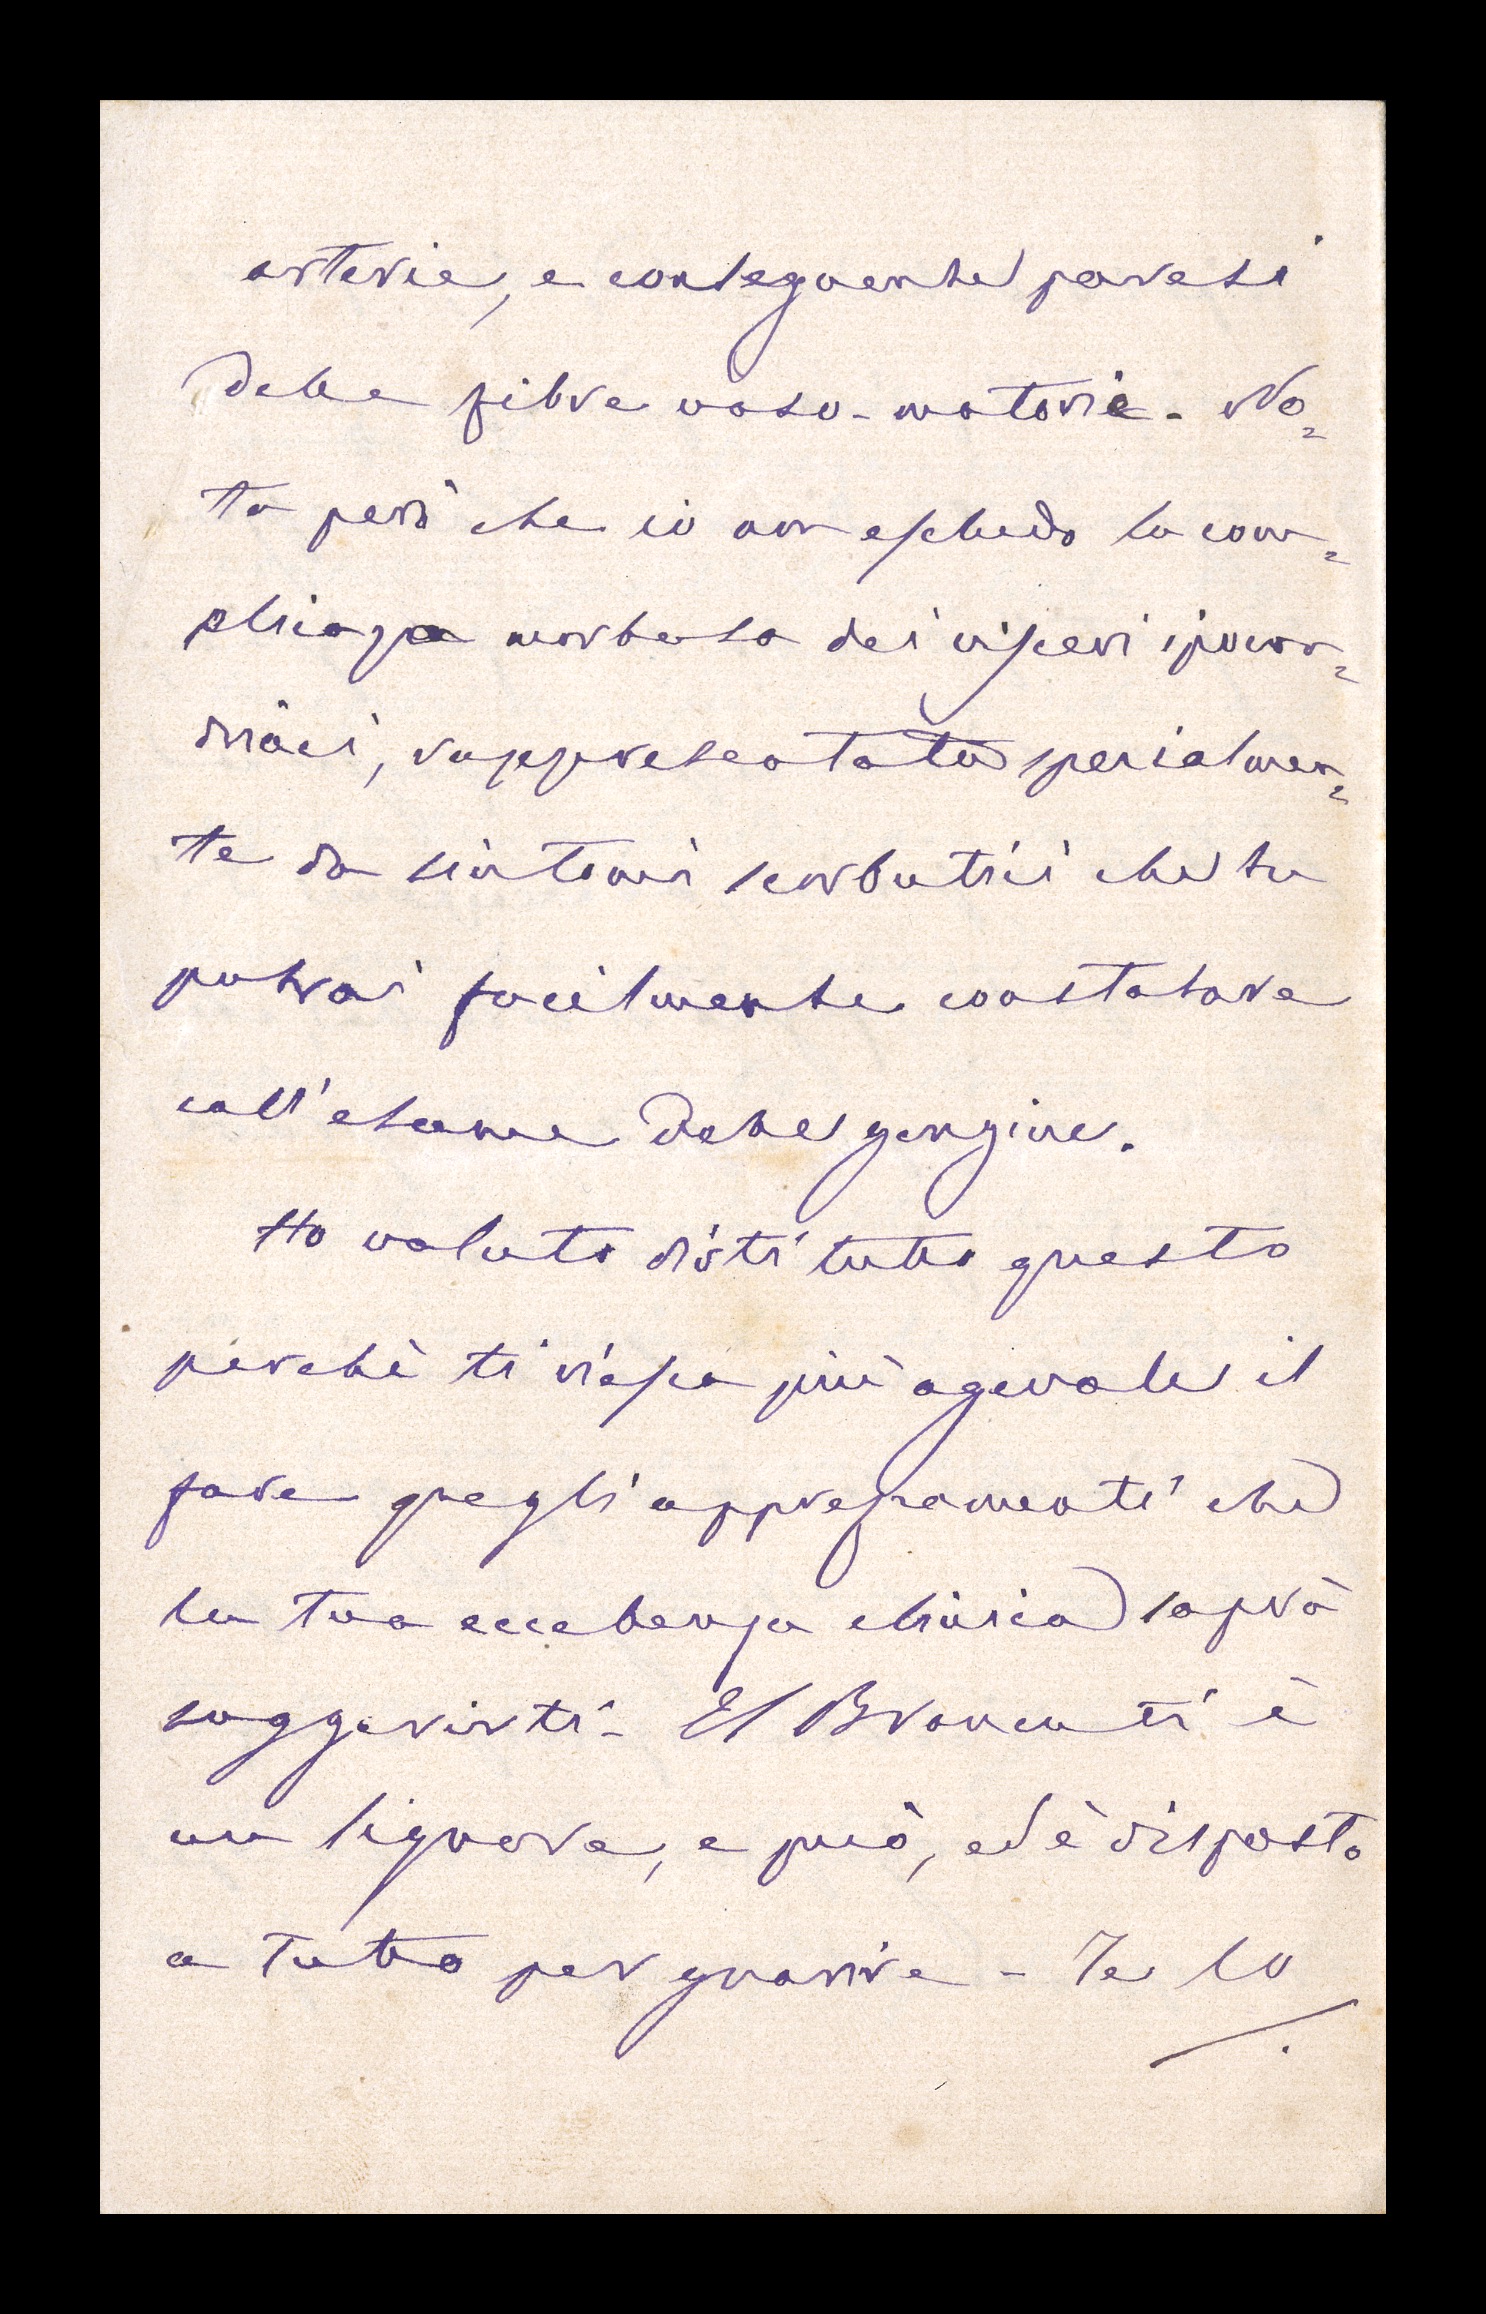 arterie, e conseguente paresi
delle fibre vaso-motorie. No=
ta però che io non escludo la com=
plicazza morbosa dei visceri ipocon=
driaci, rappresentata specialmen=
te da sintomi scorbutici che tu
potrai facilmente constatare
coll'esame delle gengive.
Ho voluto dirti tutto questo
perchè ti riesca più agevole il
fare quegli apprezzamenti che
la tua eccellenza clinica saprà
suggerirti - El Brancuti è
un signore, e può, ed è disposto
a tutto per guarire - Te lo